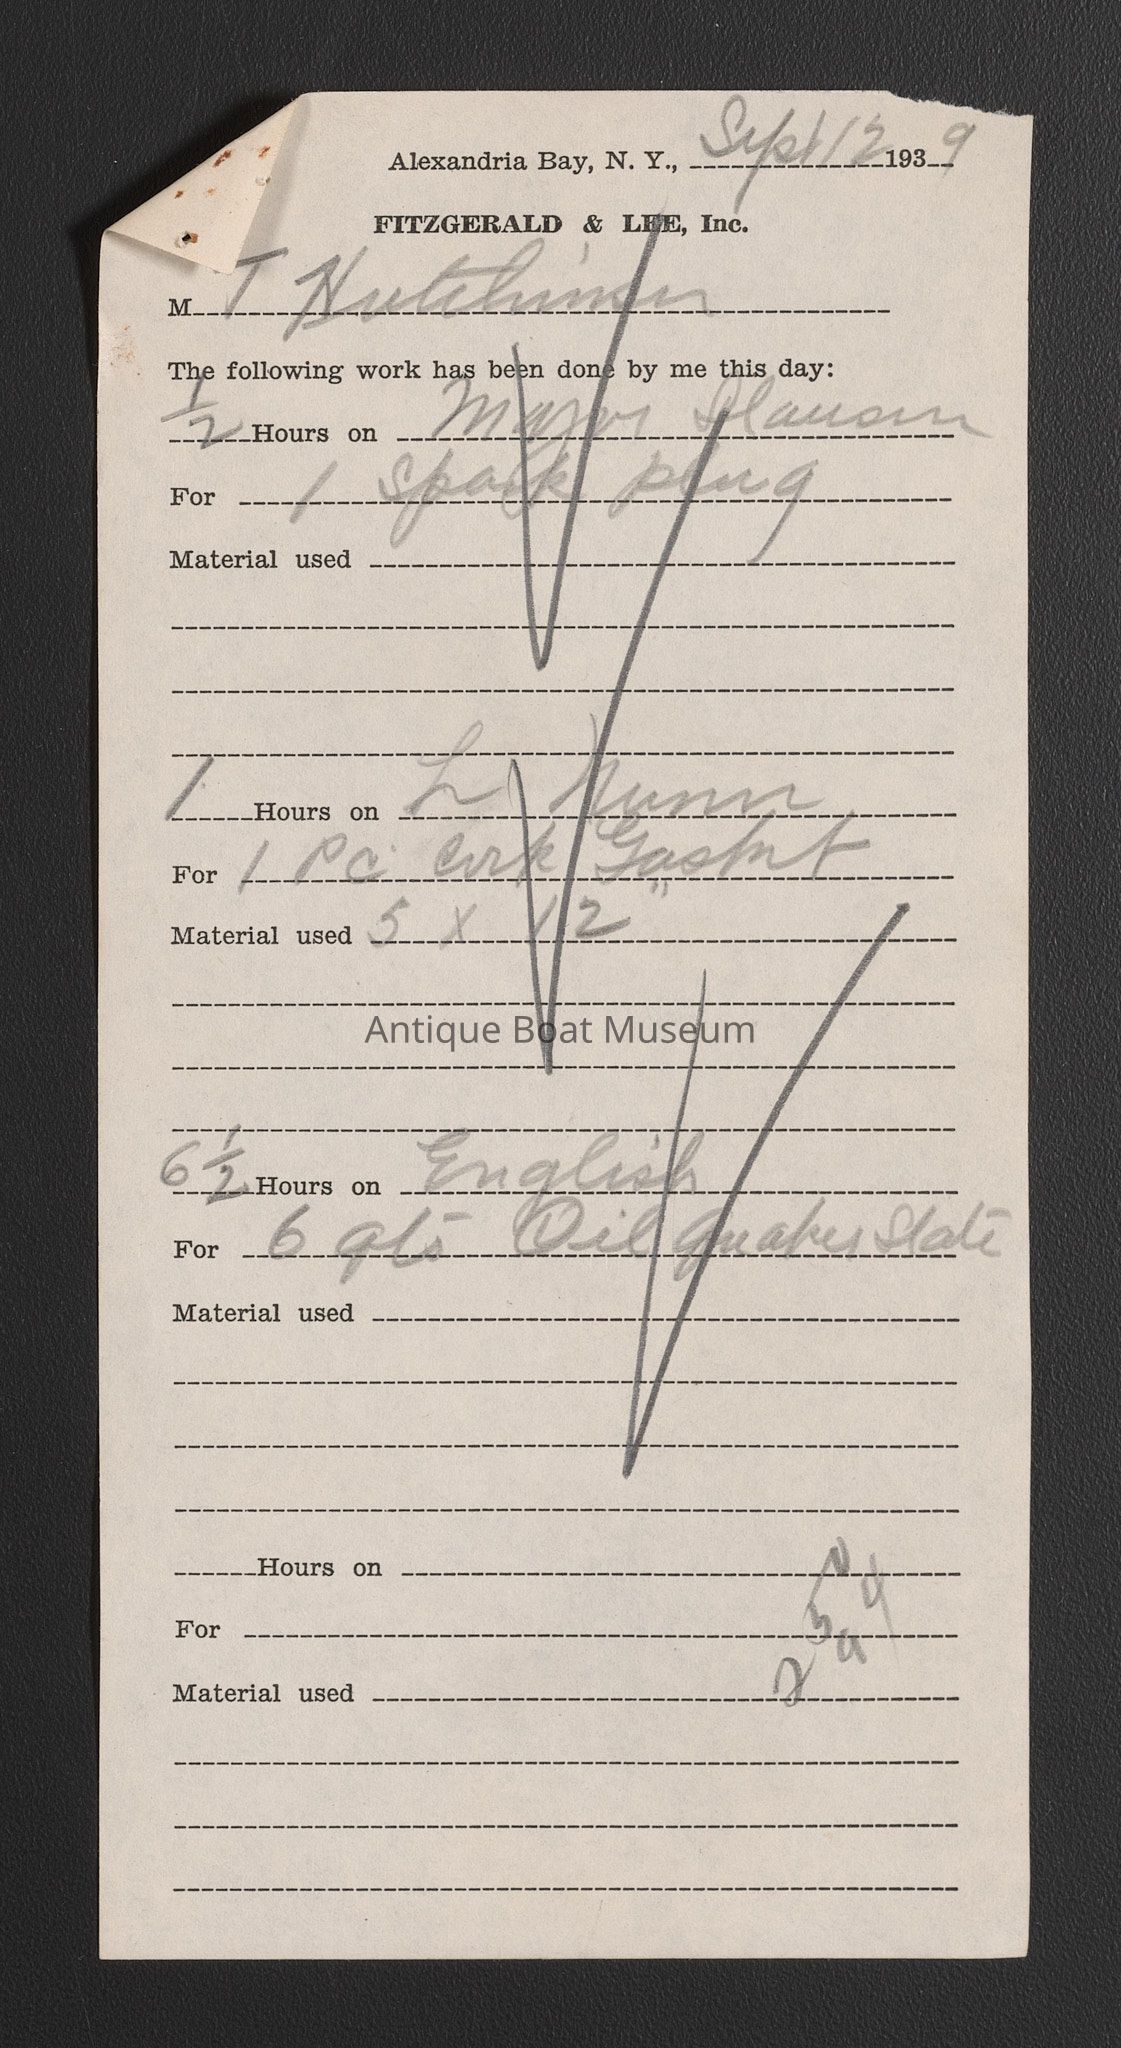 Alexandria Bay, N. Y., Sept 12 1939
FITZGERALD & LEE, Inc.
M T Hutchinson
The following work has been done by me this day:
1/2 Hours on Major Slauson
For 1 Spark plug
Material used
1 Hours on L Nunn
For 1 Pc Cork Gasket
Material used 5 x 12"
Antique Boat Museum
6 1/2 Hours on English
For 6 qts Oil Quaker State
Material used
Hours on
For
Material used